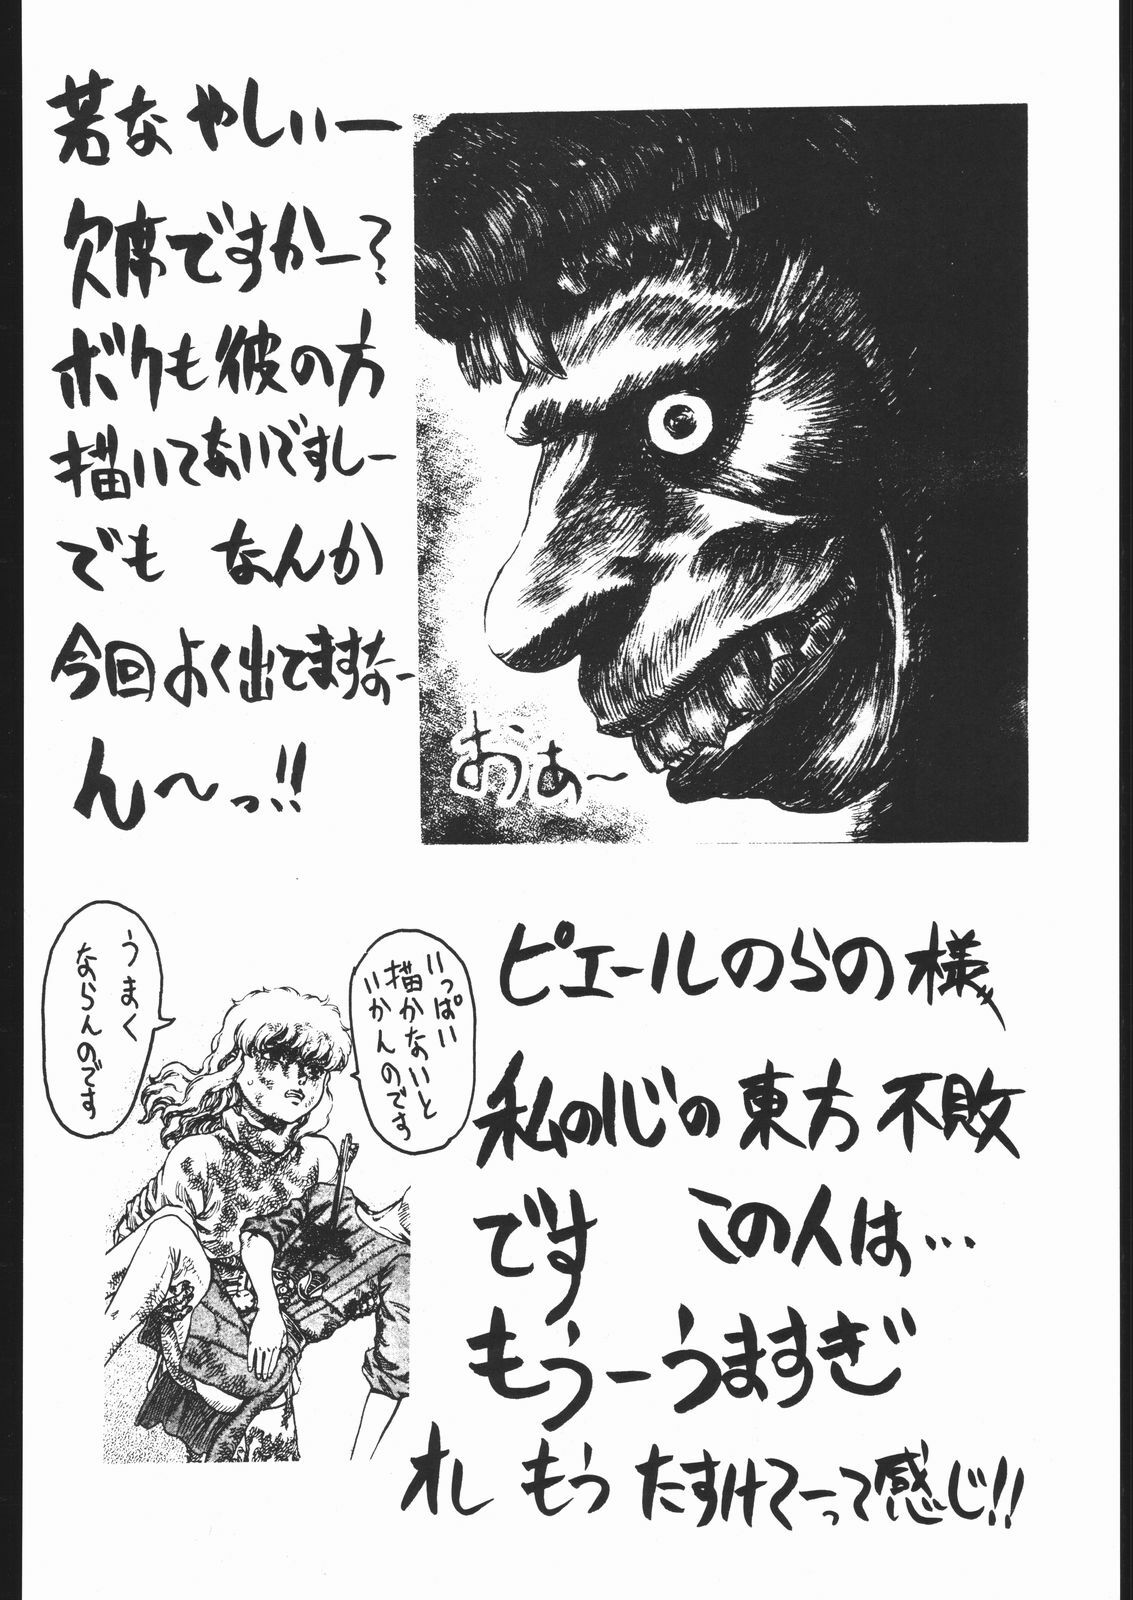 若なやしぃー
欠席ですかー?
ボクも彼の方
描いてないですしー
でも なんか
今回よく出てますなー
ん〜っ!!
おぁ〜
いっぱい
描かないと
いかんのです
うまく
ならんのです
ピエールのらの様
私の心の東方不敗
です この人は…
もうーうますぎ
オレ もう たすけてーって感じ!!